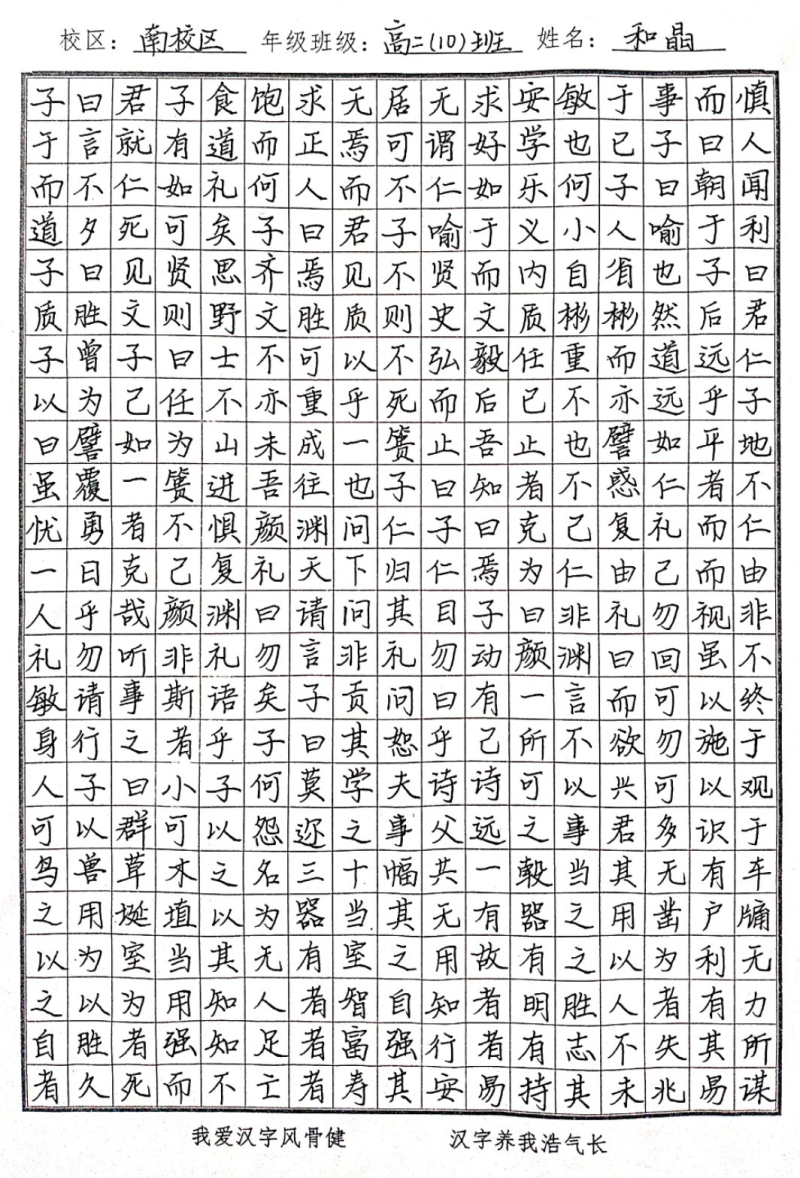 校区：南校区 年级班级：高二(10)班 姓名：和晶
子曰君子食饱求无居无求安敏于事而慎
于言就有道而正焉可谓好学也已子曰人
而不仁如礼何人而不仁如乐何子曰朝闻
道夕死可矣子曰君子喻于义小人喻于利
子曰见贤思齐焉见不贤而内自省也子曰
质胜文则野文胜质则史文质彬彬然后君
子曾子曰士不可以不弘毅任重而道远仁
以为己任不亦重乎死而后已不亦远乎子
曰譬如为山未成一篑止吾止也譬如平地
虽覆一篑进吾往也子曰知者不惑仁者不
忧勇者不惧颜渊问仁子曰克己复礼而仁
一日克己复礼天下归仁焉为仁由己而由
人乎哉颜渊曰请问其目子曰非礼勿视非
礼勿听非礼勿言非礼勿动颜渊曰回虽不
敏请事斯语矣子贡问曰有一言而可以终
身行之者乎子曰其恕乎己所不欲勿施于
人子曰小子何莫学夫诗诗可以兴可以观
可以群可以怨迩之事父远之事君多识于
鸟兽草木之名三十幅共一毂当其无有车
之用埏埴以为器当其无有器之用凿户牖
以为室当其无有室之用故有之以为利无
之以为用知人者智自知者明胜人者有力
自胜者强知足者富强行者有志不失其所
者久死而不亡者寿其安易持其未兆易谋
我爱汉字风骨健 汉字养我浩气长